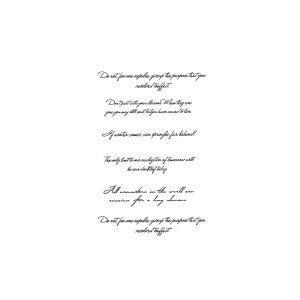 Do not for one repulse, forego the purpose that you
resolved to effect.
Don't part with your illusions. When they are
gone you may still exist, but you have ceased to live.
If winter comes, can spring be far behind?
The only limit to our realization of tomorrow will
be our doubts of today.
All remembers in the will no
for a long
Do not for one repulse, forego the purpose that you
resolved to effect.